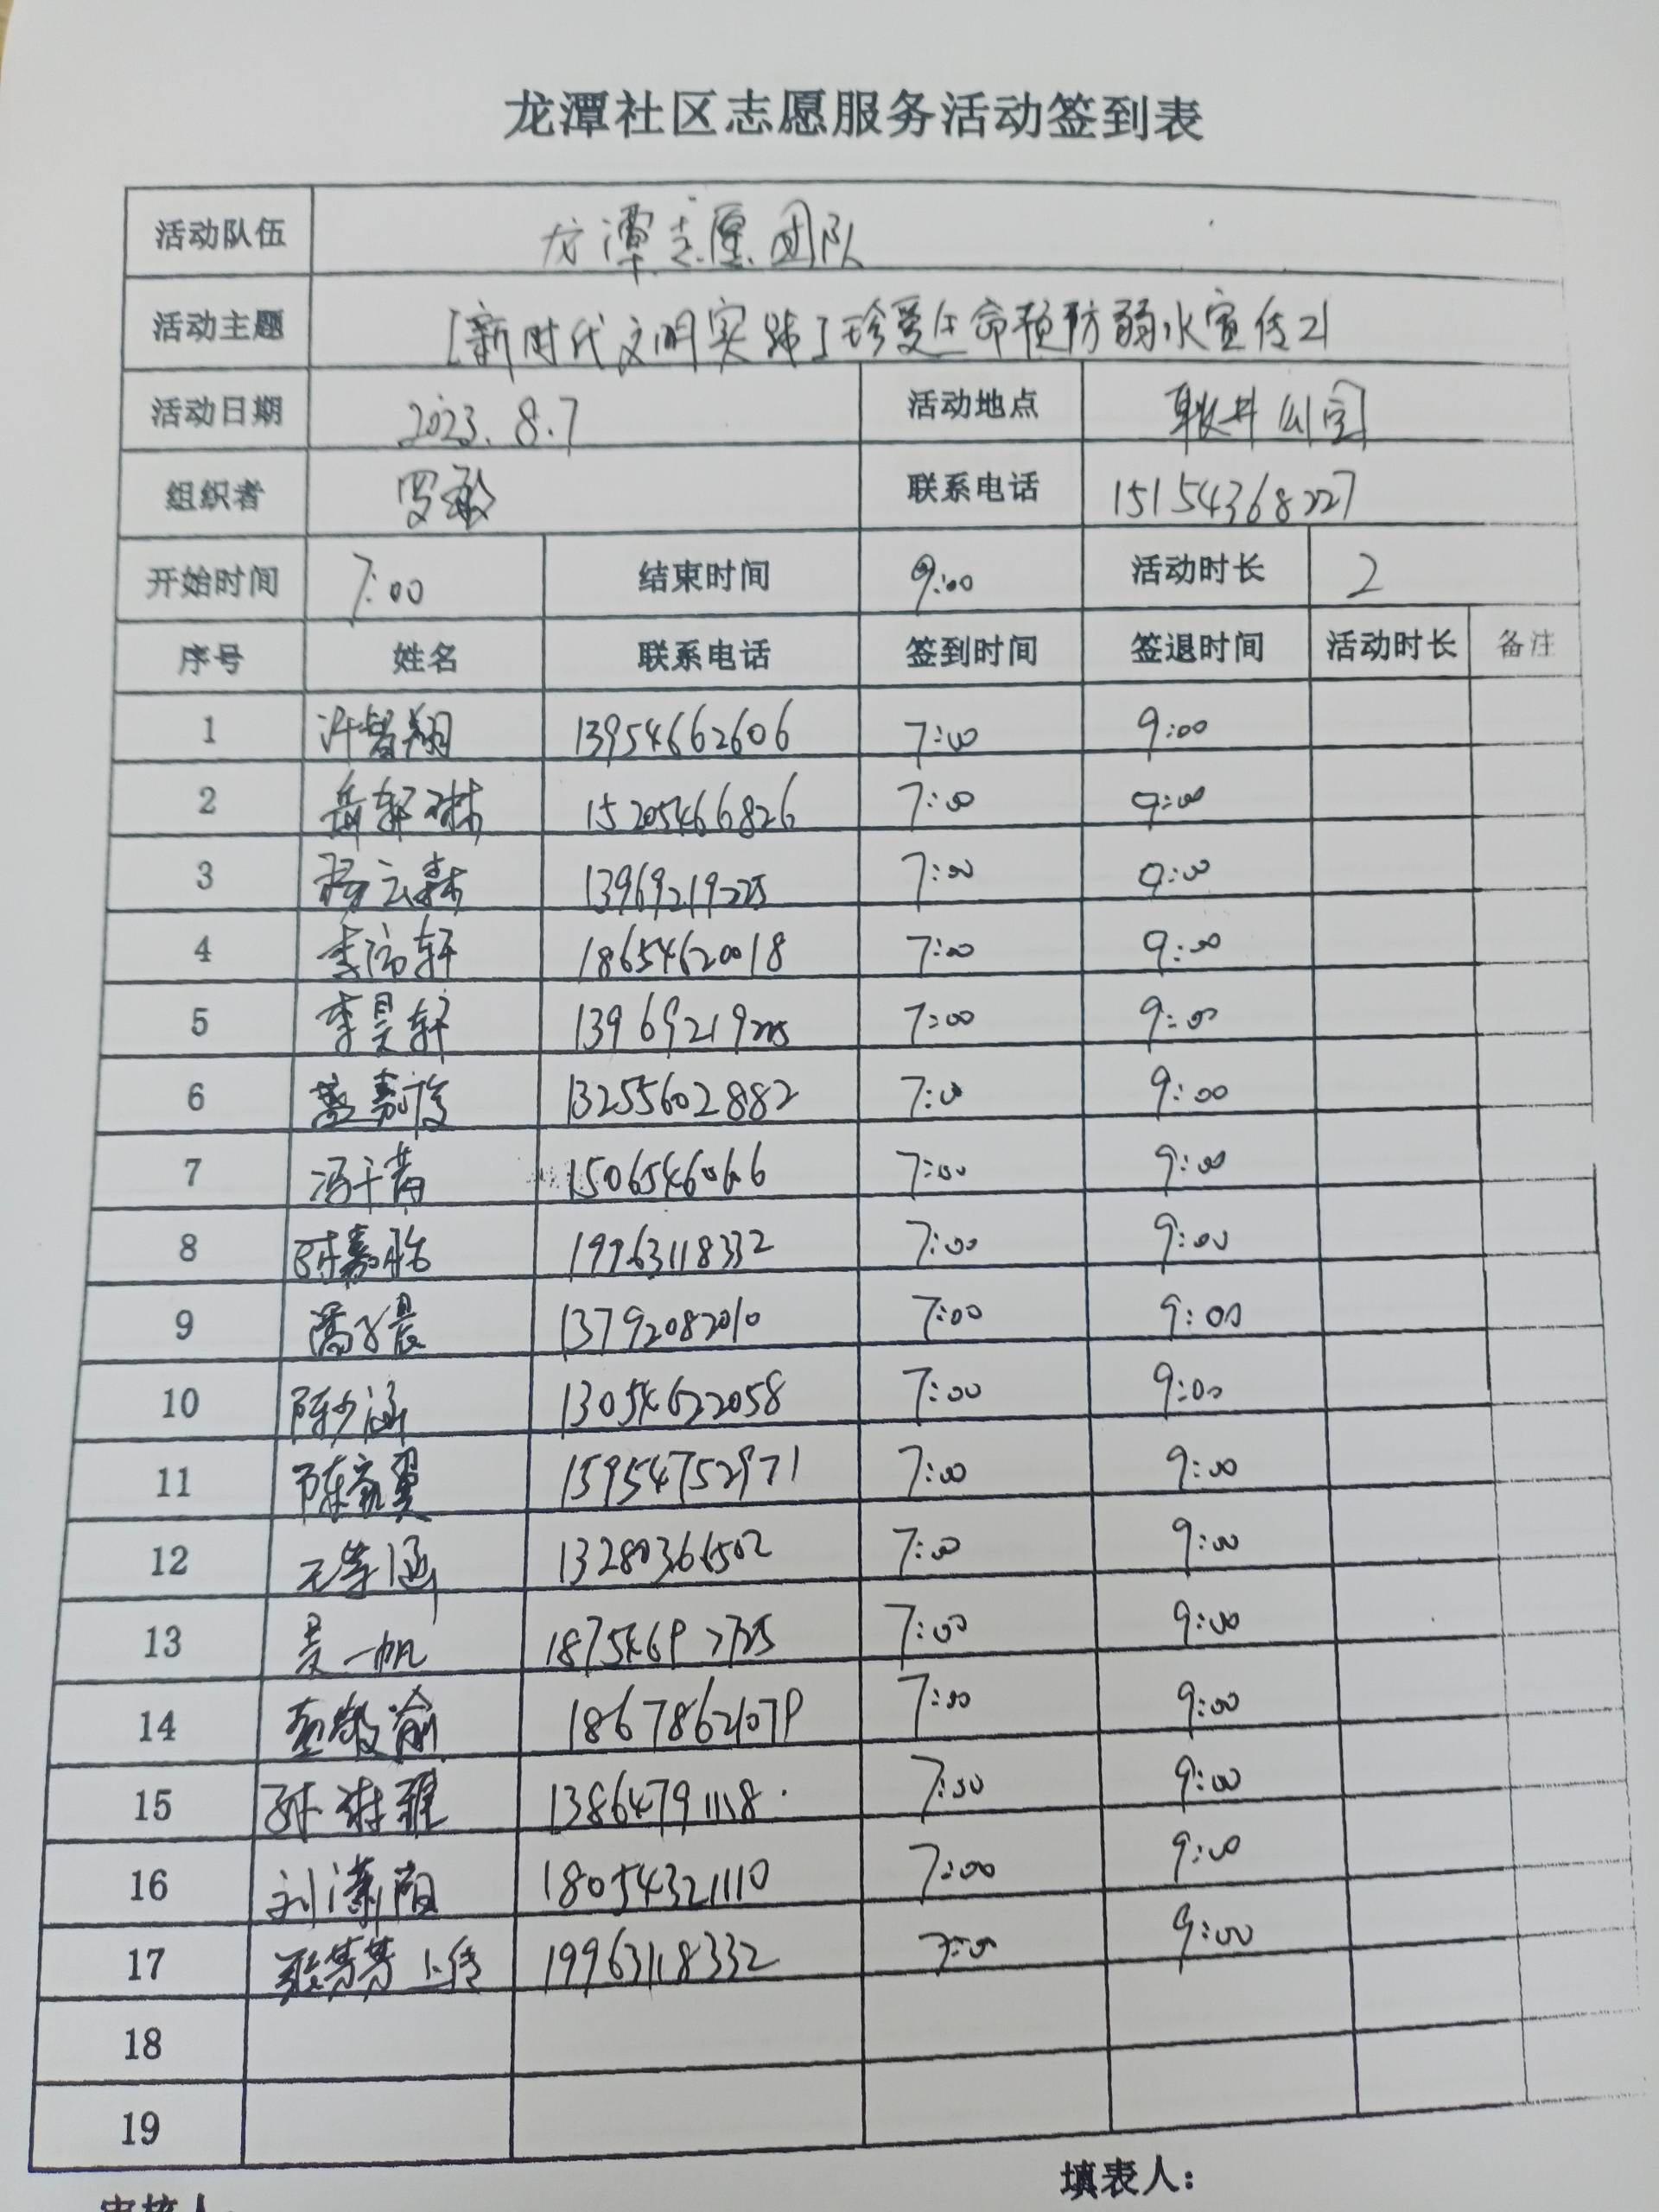 龙潭社区志愿服务活动签到表
活动队伍 龙潭志愿团队
活动主题 [新时代文明实践]珍爱生命预防溺水宣传21
活动日期 2023.8.7 活动地点
组织者 罗敏 联系电话 15154368227
开始时间 7:00 结束时间 9:00 活动时长 2
序号 姓名 联系电话 签到时间 签退时间 活动时长 备注
1 许智翔 13954662606 7:00 9:00
2 岳轩琳 15205466826 7:00 9:00
3 杨云森 13969219225 7:00 9:00
4 18654620018 7:00 9:00
5 李昊轩 13969219225 7:00 9:00
6 13255602882 7:00 9:00
7 7:00 9:00
8 19963118332 7:00 9:00
9 潘子晨 13792082010 7:00 9:00
10 陈少涵 13054622058 7:00 9:00
11 15954752971 7:00 9:00
12 13280366502 7:00 9:00
13 7:00 9:00
14 18678621079 7:00 9:00
15 13864791118 7:00 9:00
16 18054321110 7:00 9:00
17 19963118332 7:00 9:00
18
19
填表人:
审核人: